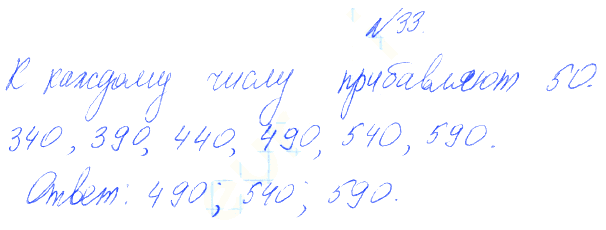 №33.
К каждому числу прибавляют 50.
340, 390, 440, 490, 540, 590.
Ответ: 490; 540; 590.